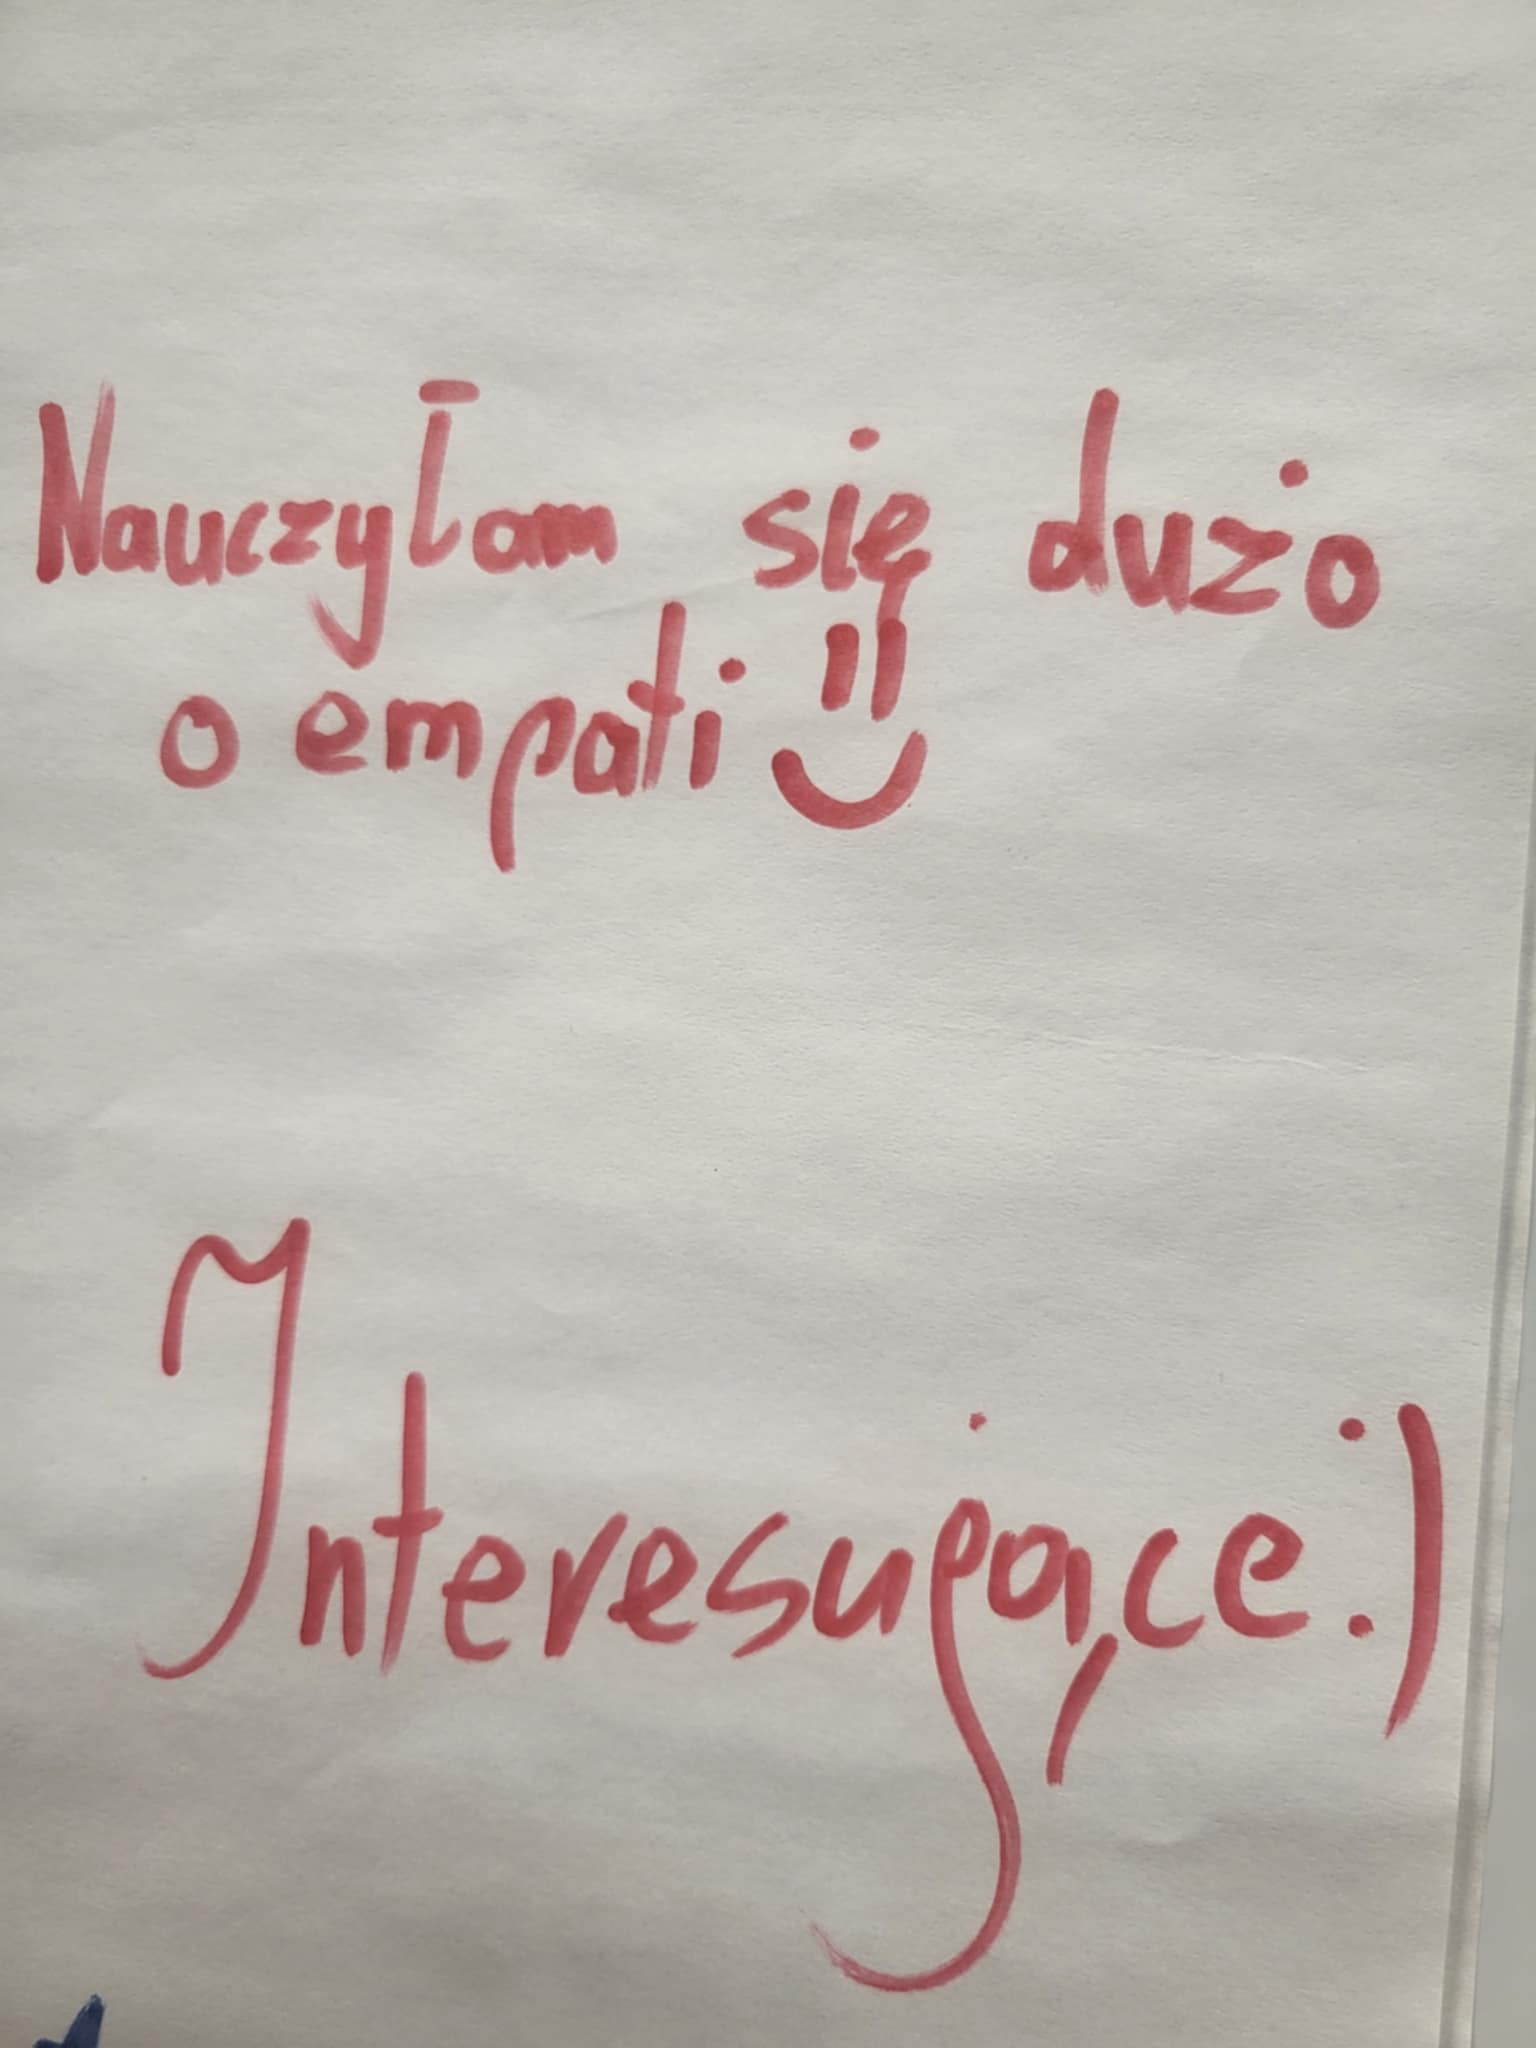 Nauczyłam się dużo
o empati
Interesujące :)